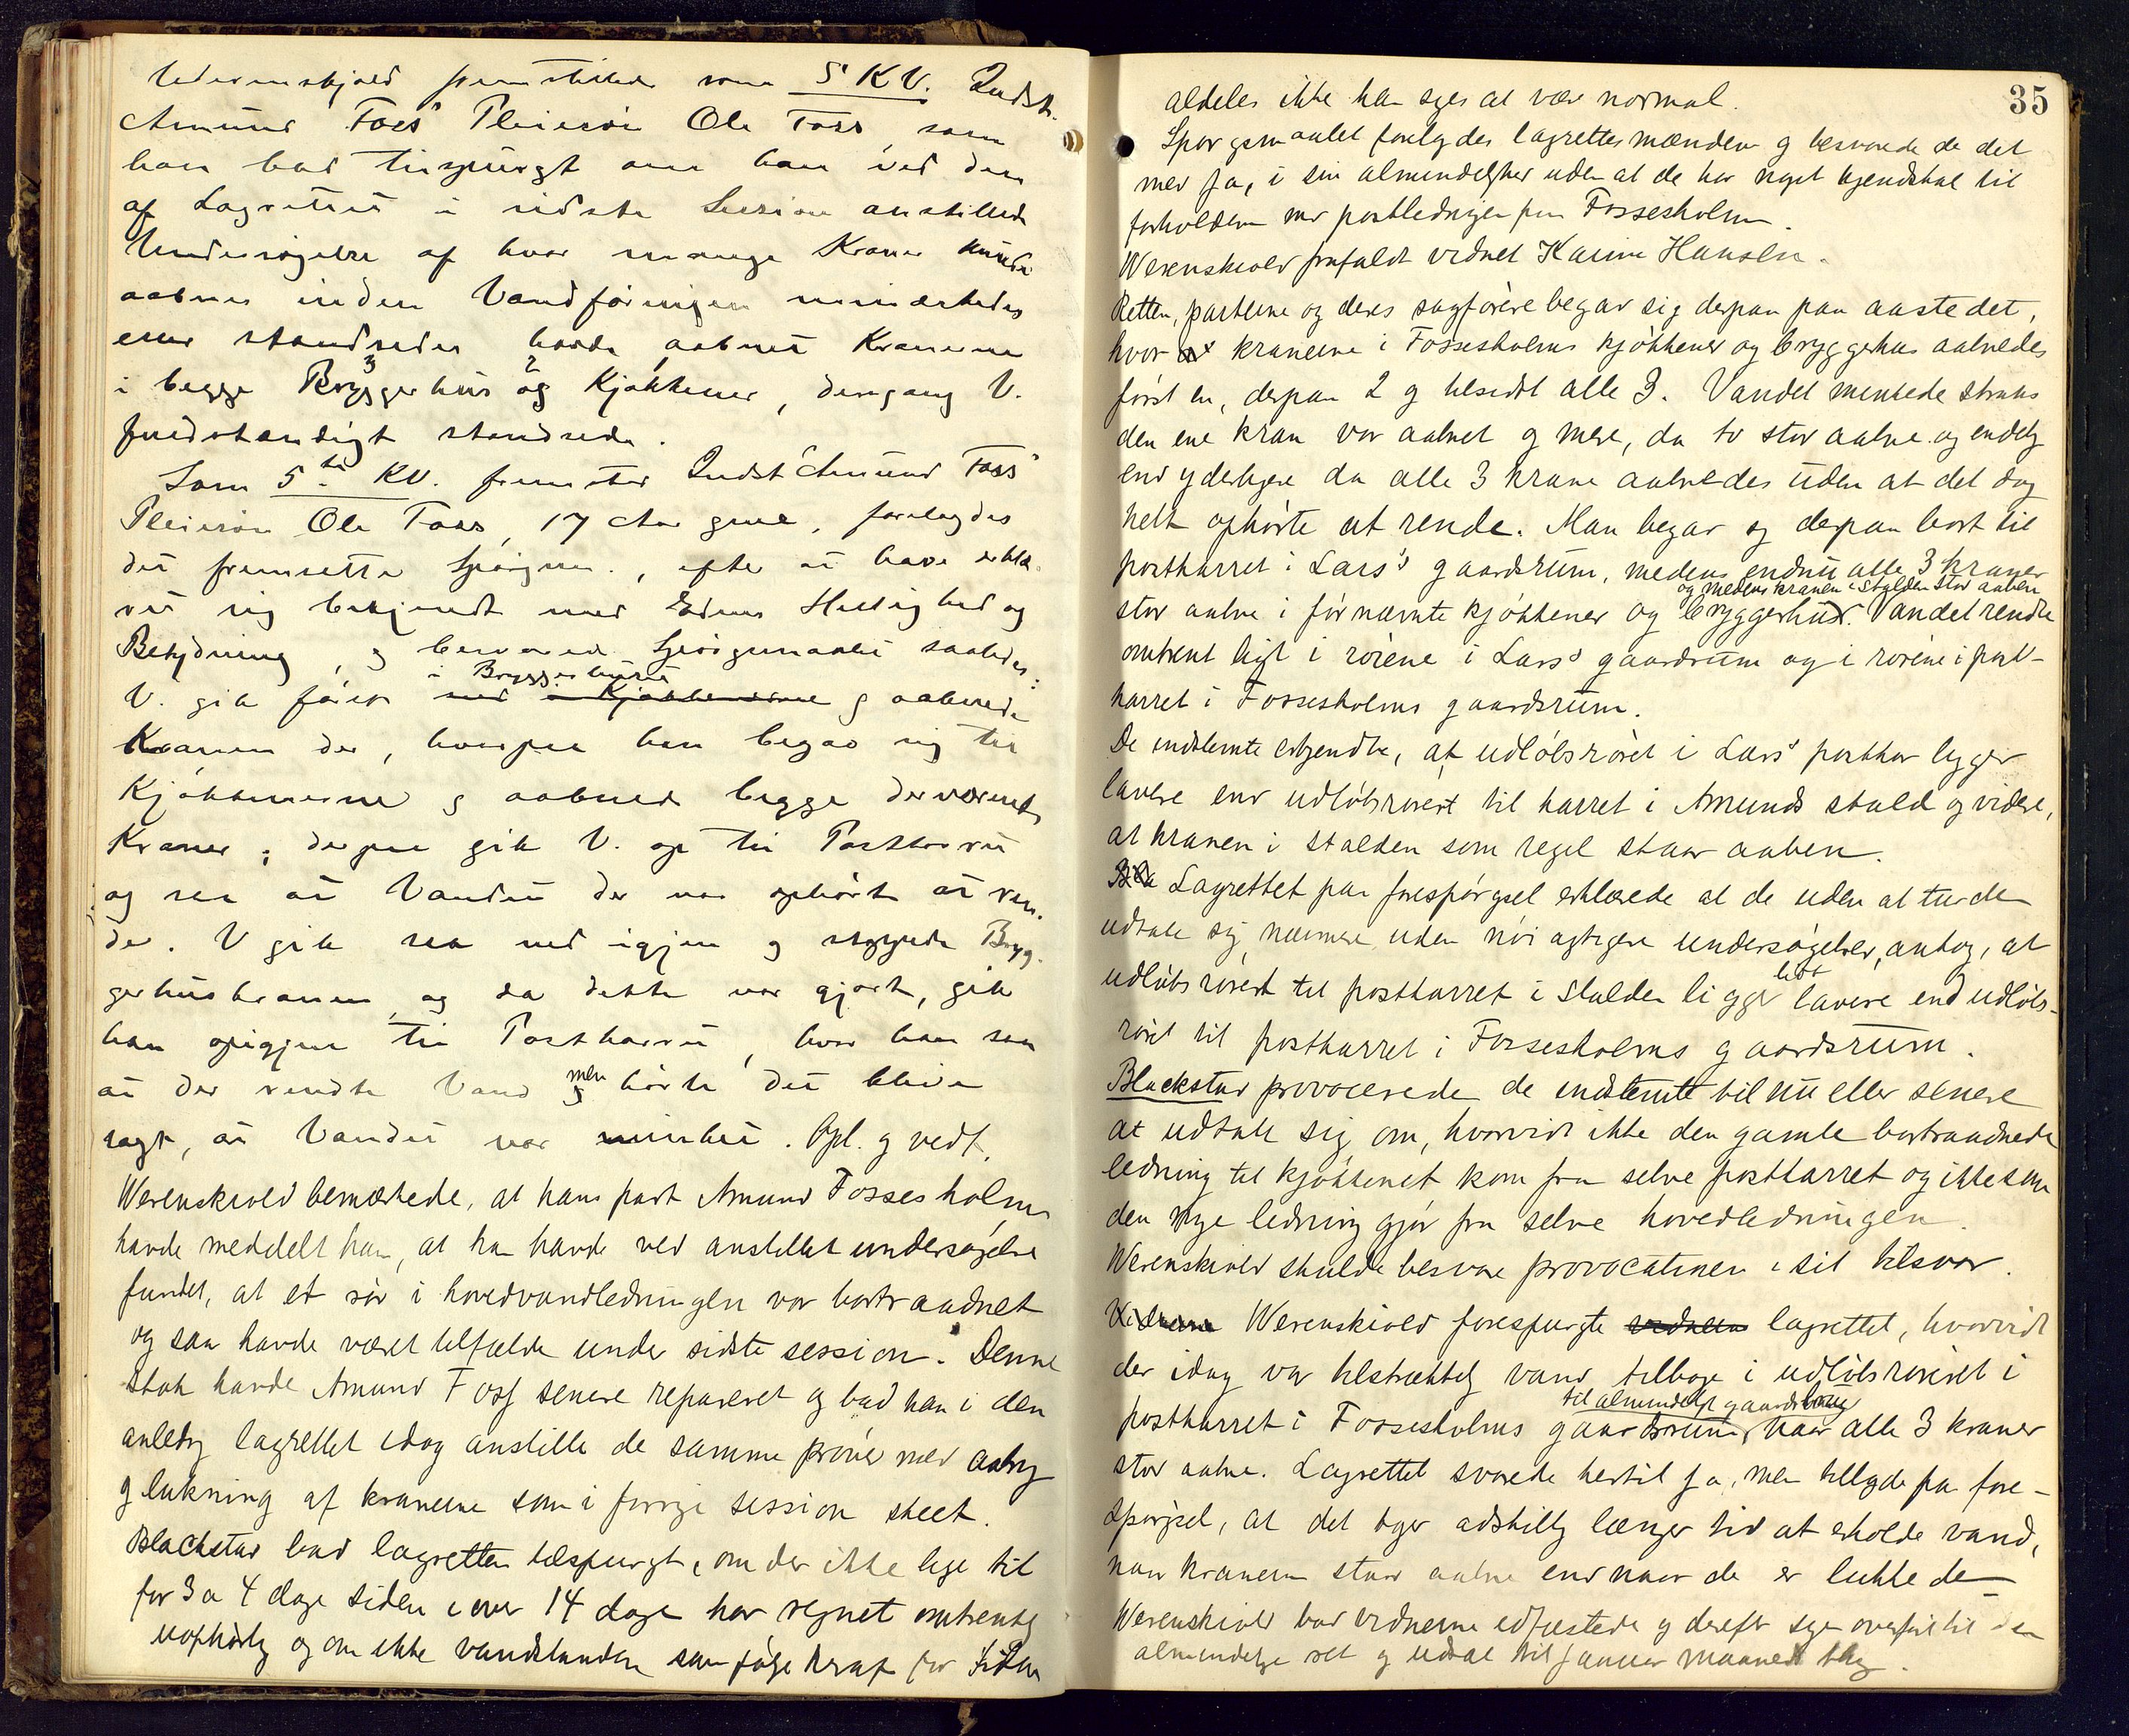 Werenskjold fremstillede som 5' KV. Indst.
Amund Foss' Pleiesøn Ole Foss som
han bad tilspurgt om han ved den
af Lagrettet i sidste Session anstillede
Undersøgelse af hvor mange Kraner kunde
aabnes inden Vandføringen mindskedes
eller standsedes havde aabnet Kranerne
i begge Bryggerhus og Kjøkkener, dengang V.
fuldstændigt standsede.
Som 5te KV. fremstod Indst Amund Foss'
Pleiesøn Ole Foss, 17 Aar gml, forelagdes
det fremsatte Spørgsm., efter at have erklæ-
ret sig bekjendt med Edens Hellighed og
Betydning, og besvarede Spørgsmaalet saaledes:
V. gik først ned i Kjøkkenerne i Bryggerhuset og aabnede
Kranen der, hvorpaa han begav sig til
Kjøkkenerne og aabnede begge derværende
Kraner; derpaa gik V. op til Postkarret
og saa at Vandet der var ophørt at ren-
de. V gik saa ned igjen og stoppede Bryg-
gerhuskranen og da dette var gjort, gik
han opigjen til Postkarret, hvor han saa
at der rendte Vand men hørte det blive
sagt, at Vandet var mindre. Opl. g vedt.
Werenskiold bemærkede, at hans part Amund Fossesholm
havde meddelt ham, at han havde ved anstillet undersøgelse
fundet, at et rør i hovedvandledningen var bortraadnet
og saa havde været tilfælde under sidste session. Denne
Stok havde Amund Foss senere repareret og bad han i den
anledng lagrettet idag anstille de samme prøver med aabng
g lukning af kranerne som i forrige session skeet.
Blackstad bad lagretten tilspurgt, om der ikke lige til
for 3 a 4 dage siden i over 14 dage har regnet omtrentlg
uophørlg og om ikke vandstanden som følge heraf for tiden
35
aldeles ikke kan siges at være normal.
Spørgsmaalet forelagdes lagrettesmændene g besvarede de det
med ja, i sin almindelighed uden at de har noget kjendskab til
forholdene ved postledningen paa Fossesholm.
Werenskiold frafaldt vidnet Karine Hansen.
Retten, parterne og deres sagførere begav sig derpaa paa aastedet,
hvor kranerne i Fossesholms kjøkkener og bryggerhus aabnedes
først en, derpaa 2 g tilsidst alle 3. Vandet minkede straks
den ene kran var aabnet g mere, da to stod aabne og endelg
end yderligere da alle 3 krane aabnedes uden at det dog
helt ophørte at rende. Man begav sig derpaa bort til
postkarret i Lars's gaardsrum, medens endnu alle 3 kraner
og medens kranen i Stalden stod aaben
stod aabne i førnævnte kjøkkener og bryggerhus. Vandet rendte
omtrent ligt i rørene i Lars's gaardsrum og i rørene i post-
karret i Fossesholms gaardsrum.
De indstemte erkjendte, at udløbsrøret i Lars' postkar ligger
lavere end udløbsrøret til karret i Amunds stald g videre,
at kranen i stalden som regel staar aaben.
Lagrettet paa forespørgsel erklærede at de uden at turde
udtale sig nærmere uden nøiagtigere undersøgelser, antog, at
udløbsrøret til postkarret i Stalden ligger lidt lavere end udløbs-
røret til postkarret i Fossesholms gaardsrum.
Blackstad provocerede de indstemte til nu eller senere
at udtale sig om, hvorvidt ikke den gamle bortraadnede
ledning til kjøkkenet kom fra selve postkarret og ikke som
den nye ledning gjør fra selve hovedledningen.
Werenskiold skulde besvare provocationen i sit tilsvar.
Vidnerne Werenskiold forespurgte vidnerne lagrettet, hvorvidt
der idag var tilstrækkelg vand tilbage i udløbsrøret i
til almindeligt gaardsbrug
postkarret i Fossesholms gaardsrum, naar alle 3 kraner
stod aabne. Lagrettet svarede hertil ja, men tillagde paa fore-
spørgsel, at det tager adskillig længer tid at erholde vand,
naar kranerne staar aabne end naar de er lukkede
Werenskiold bad vidnerne edfæstede g derefter sagen overført til den
almindelige ret g udsat til Januar maaned thg.